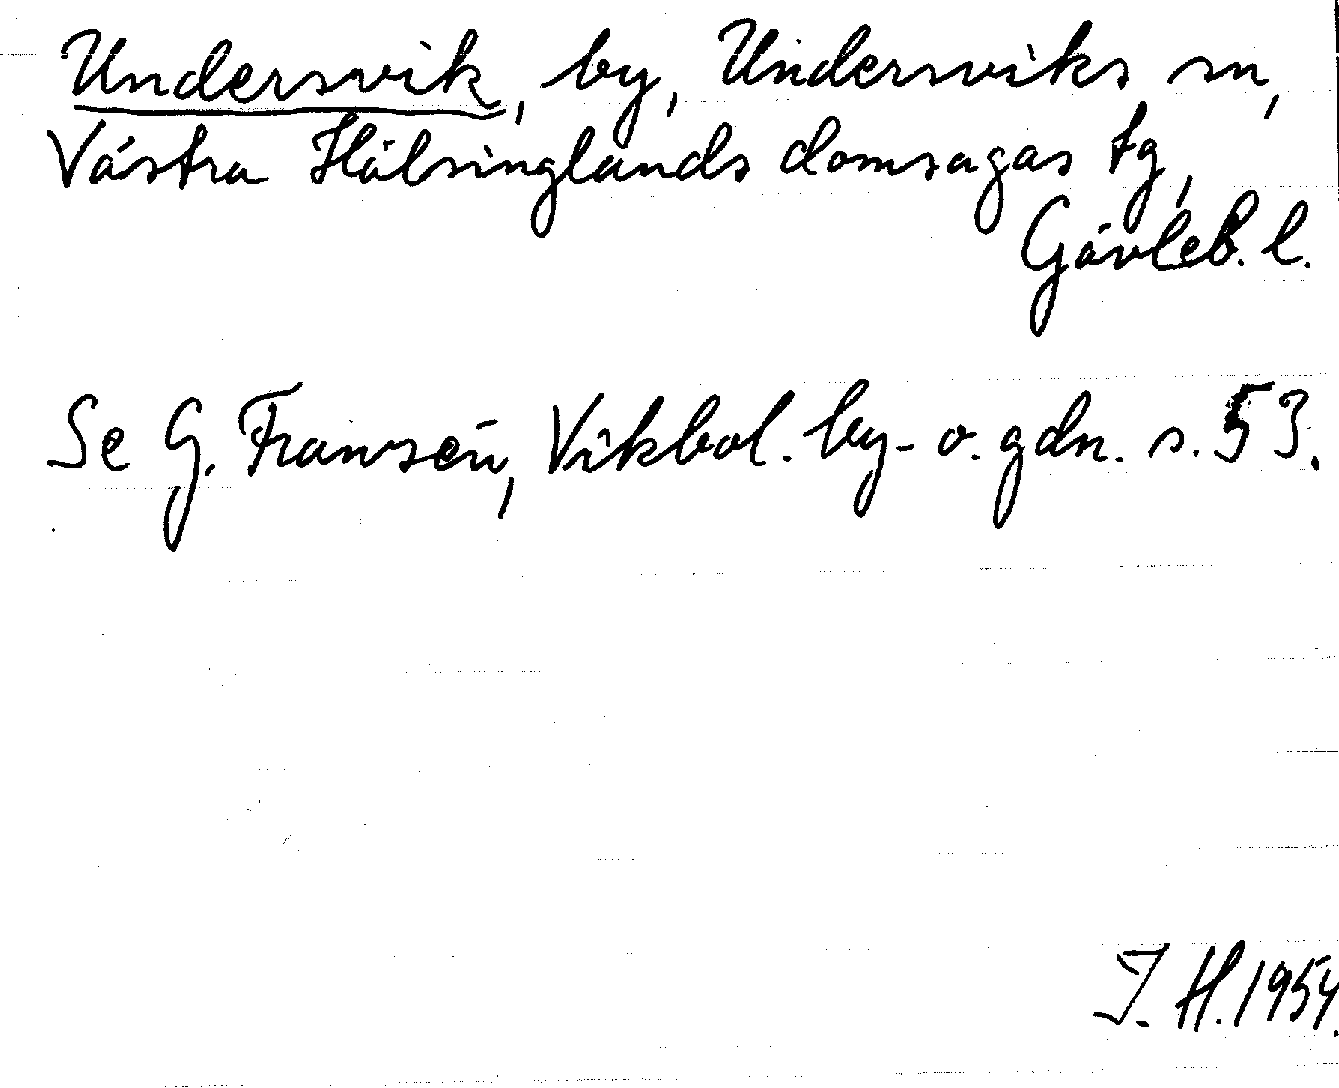 Undersvik, by, Undersviks sn,
Västra Hälsinglands domsagas tg,
Gävleb. l.
Se G. Franzén, Vikbol. by- o. gdn. s. 53.
I. H. 1954.